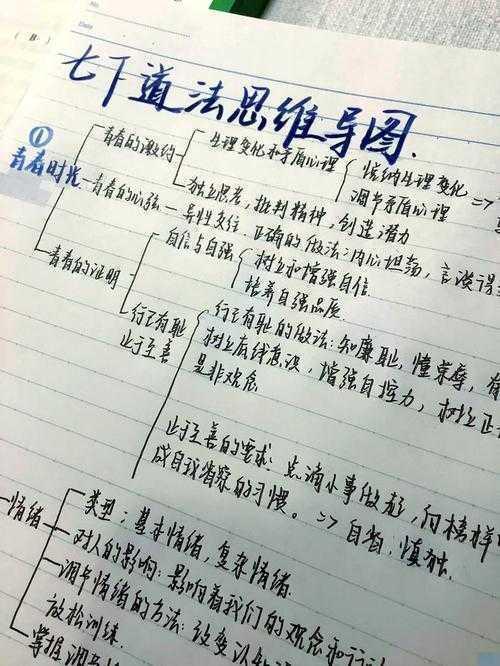 No.
Date
(B)
七下道法思维导图.
①
青春时光
青春的邀约
生理变化和矛盾心理
悦纳生理变化
调节矛盾心理
=>
独立思考, 批判精神, 创造潜力
青春的心弦 — 异性交往. 正确的做法: 内心坦荡, 言谈得
青春的证明
自信与自强
树立和增强自信
培养自强品质
行己有耻
止于至善
行己有耻的做法: 知廉耻, 懂荣辱, 有
树立底线意识, 增强自控力, 树立正
是非观念
止于至善的要求: 点滴小事做起, 向榜样
成自我省察的习惯。=> 自省. 慎独.
情绪
类型: 基本情绪, 复杂情绪.
对人的影响: 影响着我们的观念和行
调节情绪的方法: 改变认知
放松训练.
掌握调